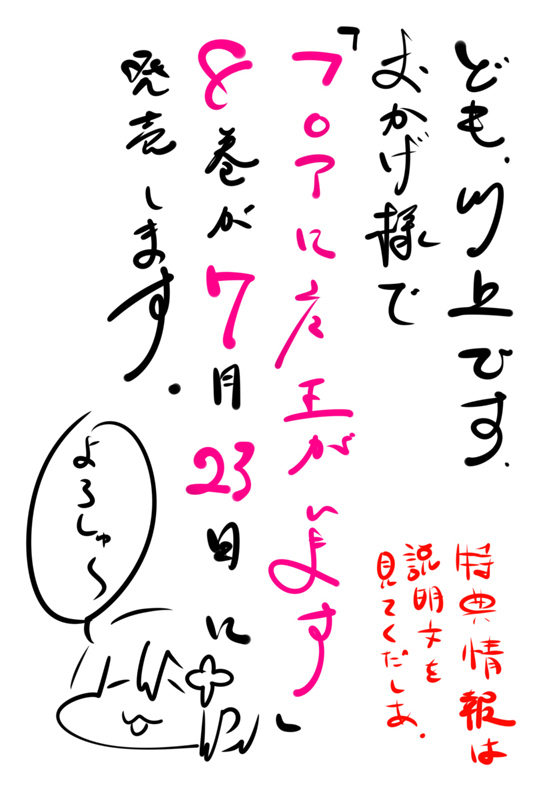 ども、川上です。
おかげ様で
「フロアに魔王がいます」
8巻が7月23日に
発売します。
よろしゅ〜
特典情報は
説明文を
見てくだしあ。